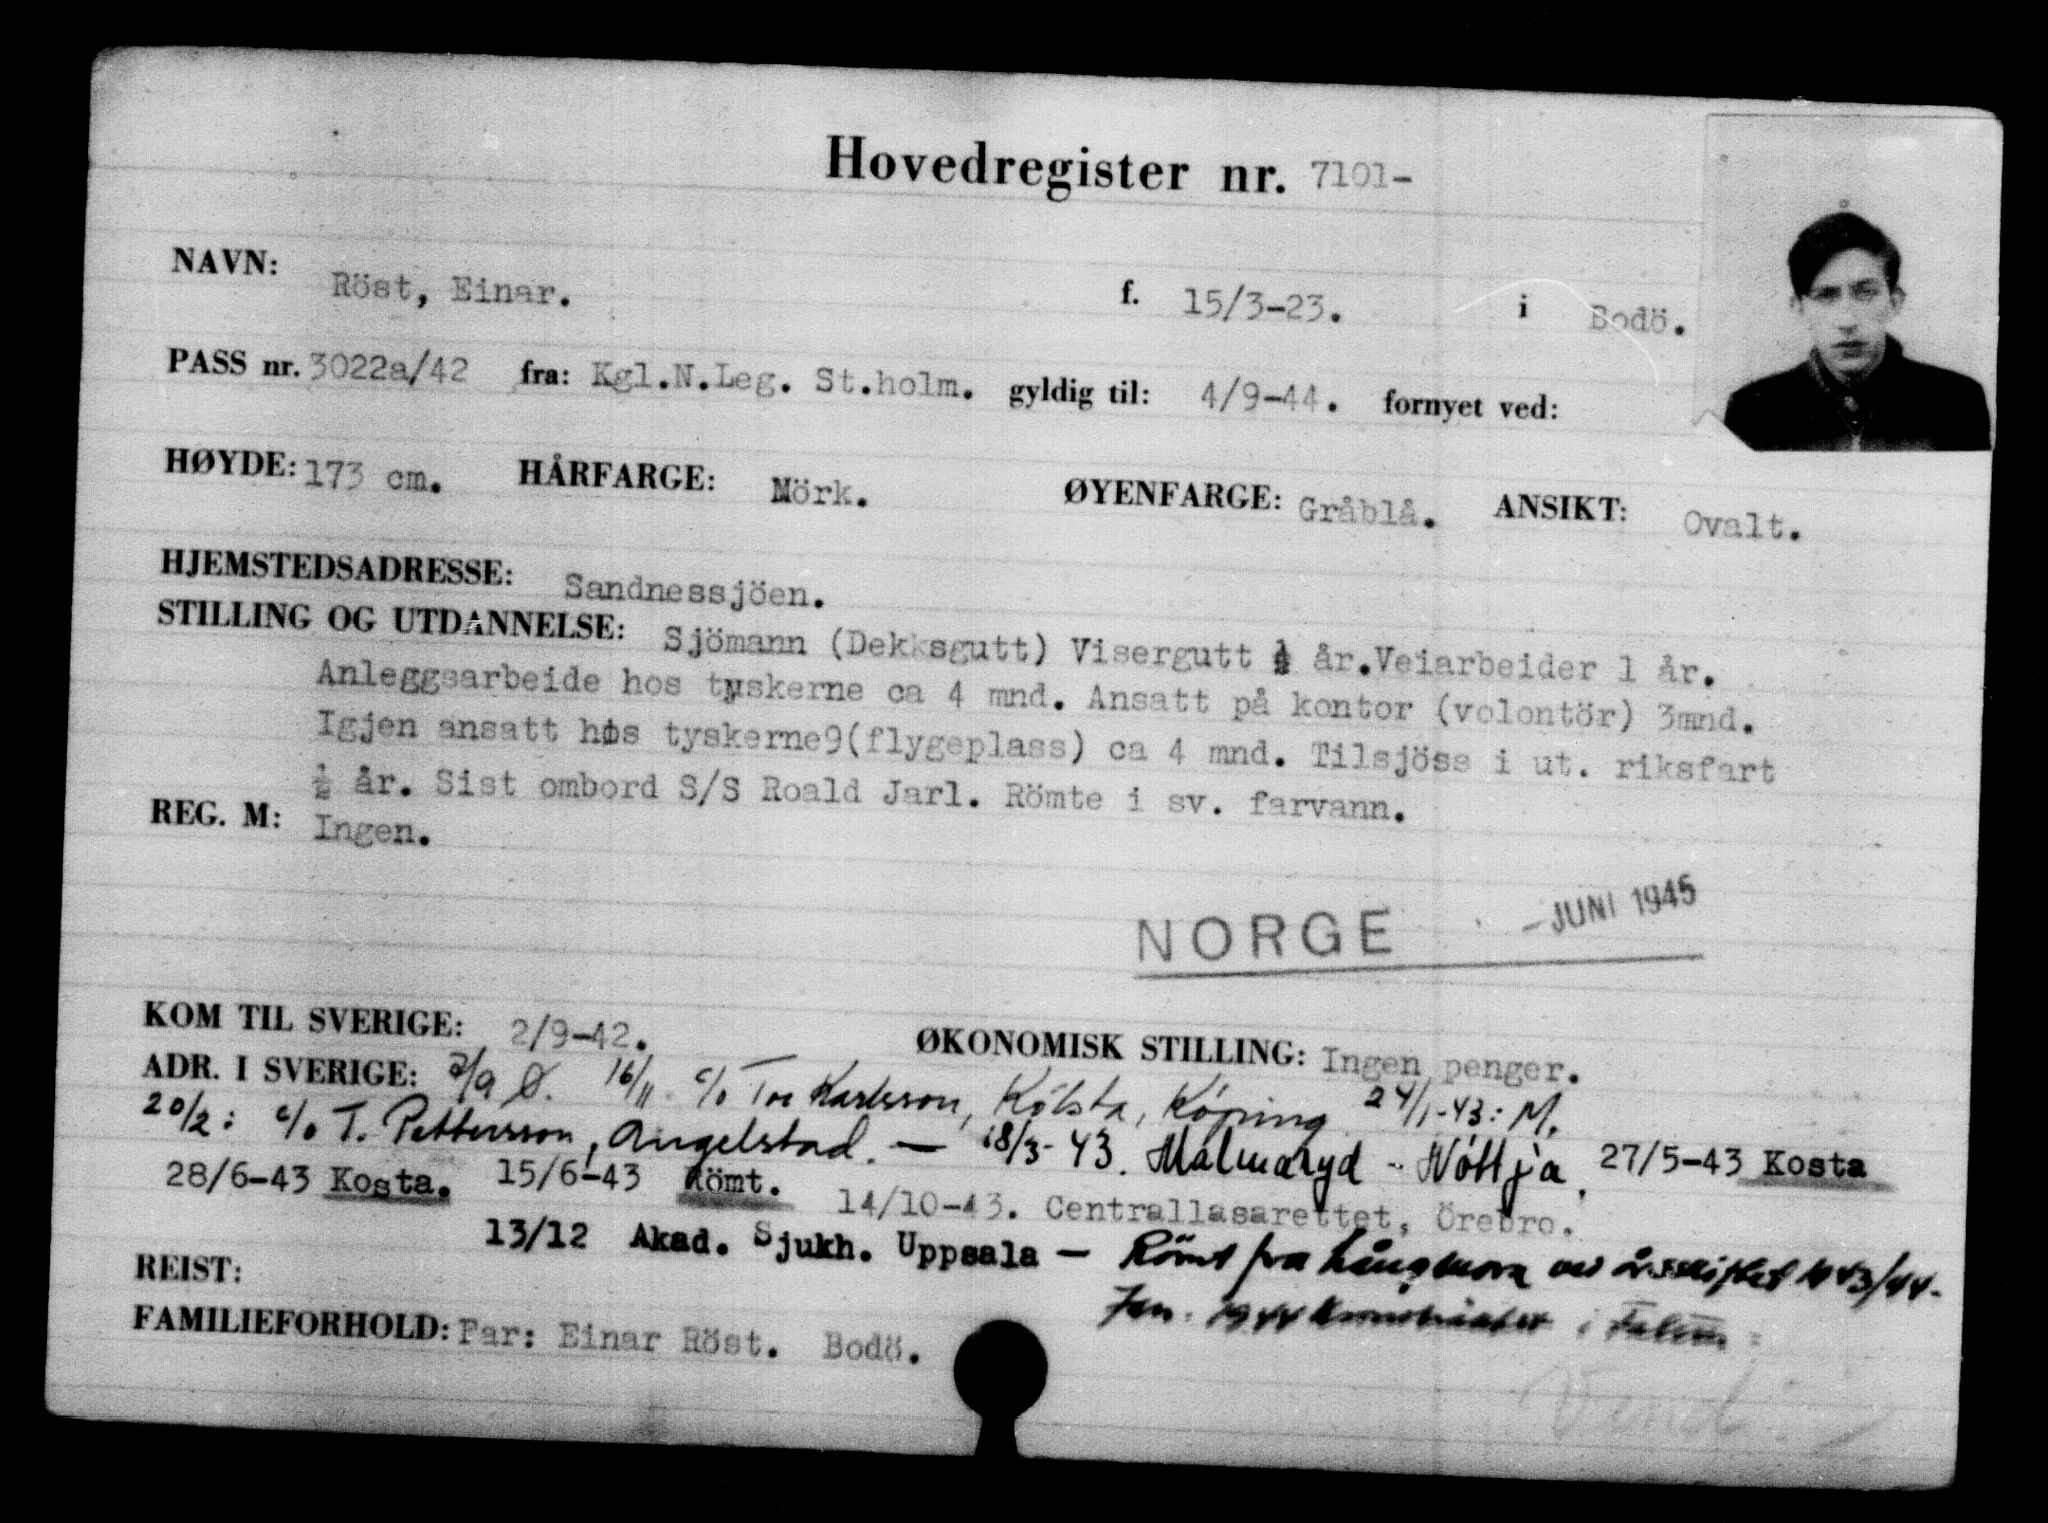 Hovedregister nr. 7101-
NAVN: Röst, Einar. f. 15/3-23. i Bodö.
PASS nr. 3022a/42 fra: Kgl.N.Leg. St.holm. gyldig til: 4/9-44. fornyet ved:
HØYDE: 173 cm. HÅRFARGE: Mörk. ØYENFARGE: Gråblå. ANSIKT: Ovalt.
HJEMSTEDSADRESSE: Sandnessjöen.
STILLING OG UTDANNELSE: Sjömann (Dekksgutt) Visergutt ½ år.Veiarbeider 1 år.
Anleggsarbeide hos tyskerne ca 4 mnd. Ansatt på kontor (volontör) 3mnd.
Igjen ansatt hos tyskerne9(flygeplass) ca 4 mnd. Tilsjöss i ut. riksfart
½ år. Sist ombord S/S Roald Jarl. Römte i sv. farvann.
REG. M: Ingen.
NORGE - JUNI 1945
KOM TIL SVERIGE: 2/9-42. ØKONOMISK STILLING: Ingen penger.
ADR. I SVERIGE: 3/9 Ø. 16/11 c/o Tor Karlsson, Kölsta, Köping 24/1-43: M.
20/2: c/o T. Pettersson, Angelstad. — 18/3-43. Målaryd - Nöttja, 27/5-43 Kosta
28/6-43 Kosta. 15/6-43 Römt. 14/10-43. Centrallasarettet, Örebro.
13/12 Akad. Sjukh. Uppsala — Römt fra Långmora ved årsskiftet 1943/44.
REIST: Jan. 1944 i Falun.
FAMILIEFORHOLD: Far: Einar Röst. Bodö.
Vend!